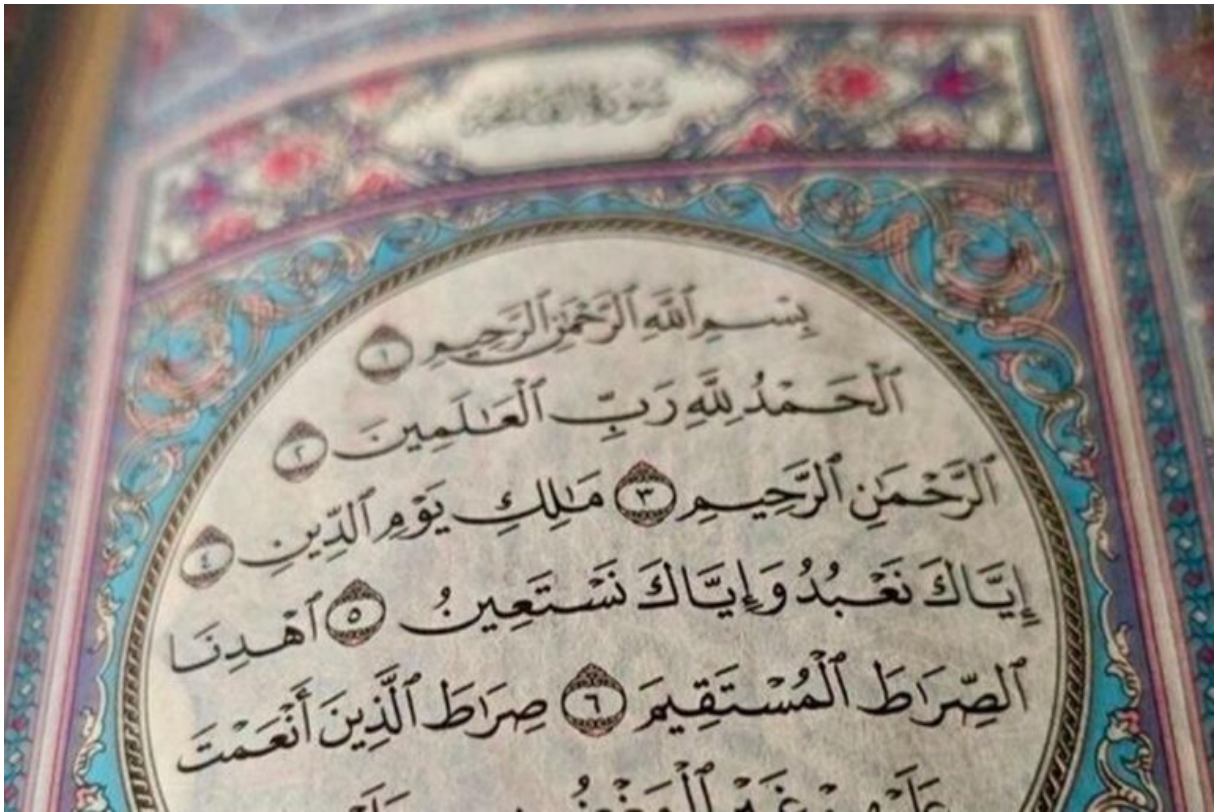 سورة الفاتحة
بِسْمِ ٱللَّهِ ٱلرَّحْمَٰنِ ٱلرَّحِيمِ ١
ٱلْحَمْدُ لِلَّهِ رَبِّ ٱلْعَٰلَمِينَ ٢
ٱلرَّحْمَٰنِ ٱلرَّحِيمِ ٣ مَٰلِكِ يَوْمِ ٱلدِّينِ ٤
إِيَّاكَ نَعْبُدُ وَإِيَّاكَ نَسْتَعِينُ ٥ ٱهْدِنَا
ٱلصِّرَٰطَ ٱلْمُسْتَقِيمَ ٦ صِرَٰطَ ٱلَّذِينَ أَنْعَمْتَ
عَلَيْهِمْ غَيْرِ ٱلْمَغْضُوبِ